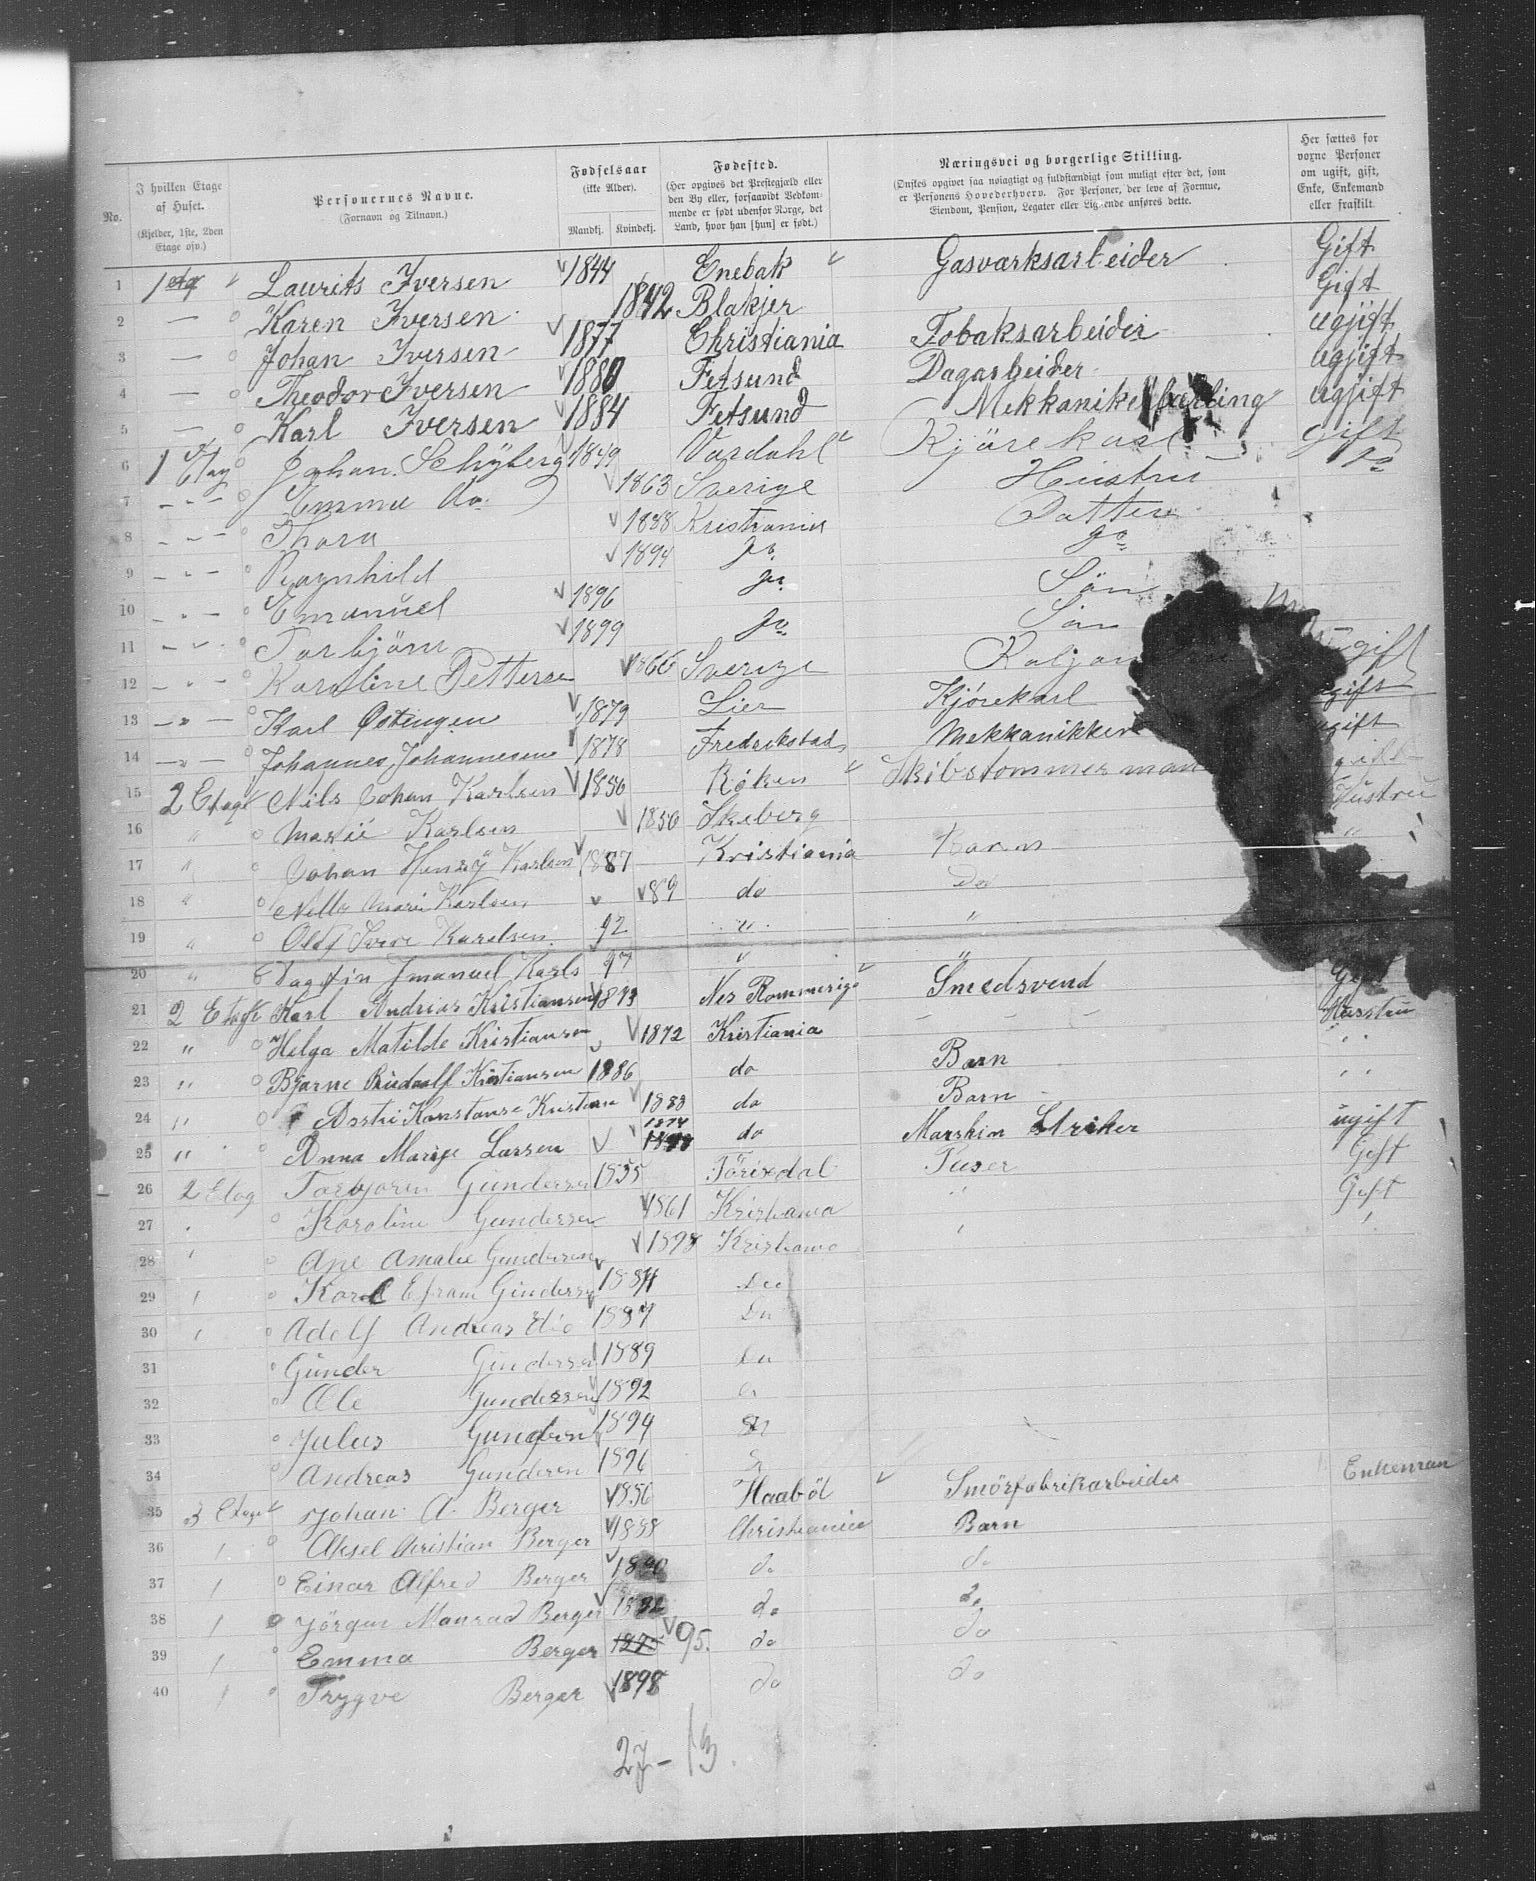 No.
I hvilken Etage af Huset. (Kjelder, 1ste, 2den Etage osv.)
Personernes Navne. (Fornavn og Tilnavn.)
Fødselsaar (ikke Alder). Mandkj. Kvindekj.
Fødested. (Her opgives det Prestegjæld eller den By eller, forsaavidt Vedkommende er født udenfor Norge, det Land, hvor han [hun] er født.)
Næringsvei og borgerlige Stilling. (Ønskes opgivet saa nøiagtigt og fuldstændigt som muligt efter det, som er Personens Hovederhverv. For Personer, der leve af Formue, Eiendom, Pension, Legater eller Lignende anføres dette.
Her sættes for voxne Personer om ugift, gift, Enke, Enkemand eller fraskilt.
1 1 etg Laurits Iversen 1844 Enebak Gasværksarbeider Gift
2 — Karen Iversen 1842 Blakjer Gift
3 — Johan Iversen 1877 Christiania Tobaksarbeider ugjift
4 — Theodor Iversen 1880 Fetsund Dagarbeider ugjift
5 — Karl Iversen 1884 Fetsund ugjift
6 1 Etag Johan Schyberg 1849 Vardahl Kjörekarl gift
7 - " - Emma do. 1863 Sverige Hustru Do
8 - " - Thora 1888 Kristiania Datter
9 - " - Ragnhild 1894 Do Do
10 - " - Emanuel 1896 Do Sön
11 - " - Torbjörn 1899 Do Sön
12 - " - Karoline Petterse 1866 Sverige ugift
13 - " - Karl Østengen 1879 Lier Kjörekarl ugift
14 - " - Johannes Johannesen 1878 Fredrikstad Mekkanikker ugift
15 2 Etage Nils Johan Karlsen 1856 Röken Skibstømmerman gift
16 " Marie Karlsen 1850 Skeberg Hustru
17 " Johan Henry Karlsen 1887 Kristiania Barn "
18 " Nelly Marie Karlsen 89 do do
19 " Olaf Karelsen 92 " "
20 " Dagfin Imanuel Karls 97 "
21 2 Etage Karl Andrias Kristiansen 1873 Nes Rommerige Smedsvend Gift
22 " Helga Matilde Kristiansen 1872 Kristiania - - - Husstru
23 " Bjarne Rudolf Kristiansen 1886 do Barn
24 " Konstanse Kristian 1888 do Barn
25 " Anna Marije Larsen 1874 do Marskin Striker ugift
26 2 Etag Torbjoren Gundersen 1855 Gift
27 " Karoline Gundersen 1861 Kristiania " Gift
28 " Amalie Gundersen 1898 Kristiania "
29 " Karl Efram Gundersen 1884 Do
30 " Adolf Andreas do 1887 Do
31 Günder Gundersen 1889 Do
32 Ole Gundersen 1892
33 Julius Gundersen 1894
34 Andreas Gunderen 1896
35 3 Etage Johan A. Berger 1856 Haaböl Smörfabrikarbeider Enkeman
36 " Aksel Christian Berger 1888 Christiania Barn
37 " Einar Alfred Berger 1890 do do
38 " Jörgen Monrad Berger do do
39 " Emma Berger 1895 95. do do
40 " Trygve Berger 1898 do do
27 - 13.